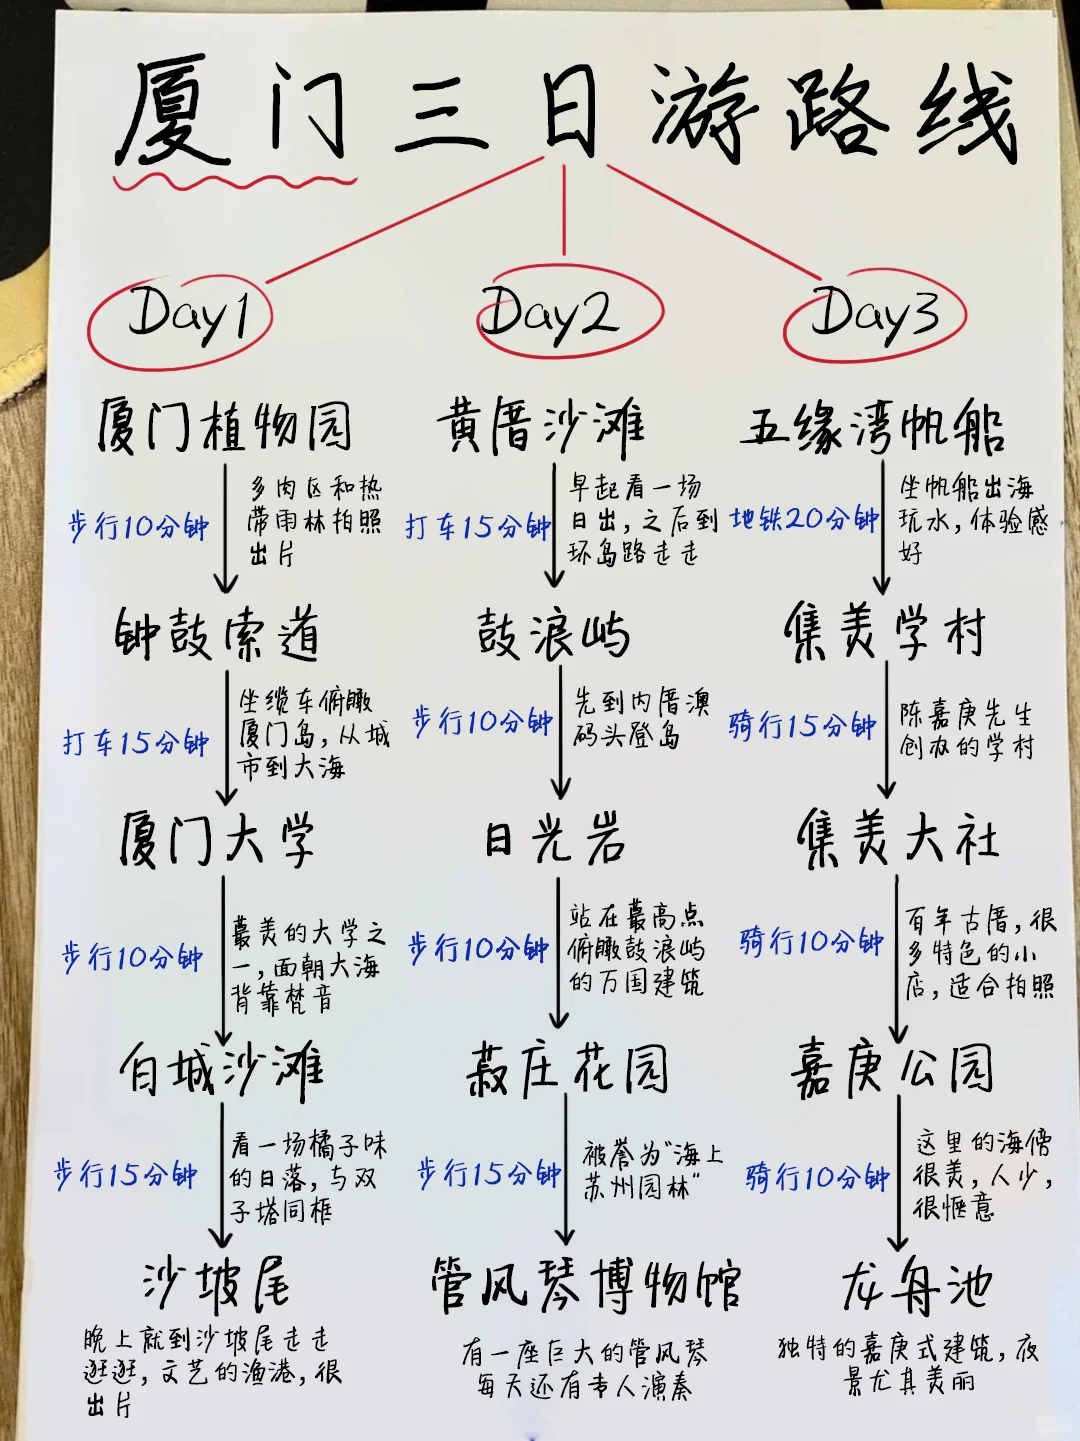 厦门三日游路线
Day1
厦门植物园
步行10分钟
多肉区和热
带雨林拍照
出片
钟鼓索道
打车15分钟
坐缆车俯瞰
厦门岛，从城
市到大海
厦门大学
步行10分钟
最美的大学之
一，面朝大海
背靠梵音
白城沙滩
步行15分钟
看一场橘子味
的日落，与双
子塔同框
沙坡尾
晚上就到沙坡尾走走
逛逛，文艺的渔港，很
出片
Day2
黄厝沙滩
打车15分钟
早起看一场
日出，之后到
环岛路走走
鼓浪屿
步行10分钟
先到内厝澳
码头登岛
日光岩
步行10分钟
站在最高点
俯瞰鼓浪屿
的万国建筑
菽庄花园
步行15分钟
被誉为"海上
苏州园林"
管风琴博物馆
有一座巨大的管风琴
每天还有专人演奏
Day3
五缘湾帆船
地铁20分钟
坐帆船出海
玩水，体验感
好
集美学村
骑行15分钟
陈嘉庚先生
创办的学村
集美大社
骑行10分钟
百年古厝，很
多特色的小
店，适合拍照
嘉庚公园
骑行10分钟
这里的海傍
很美，人少，
很惬意
龙舟池
独特的嘉庚式建筑，夜
景尤其美丽